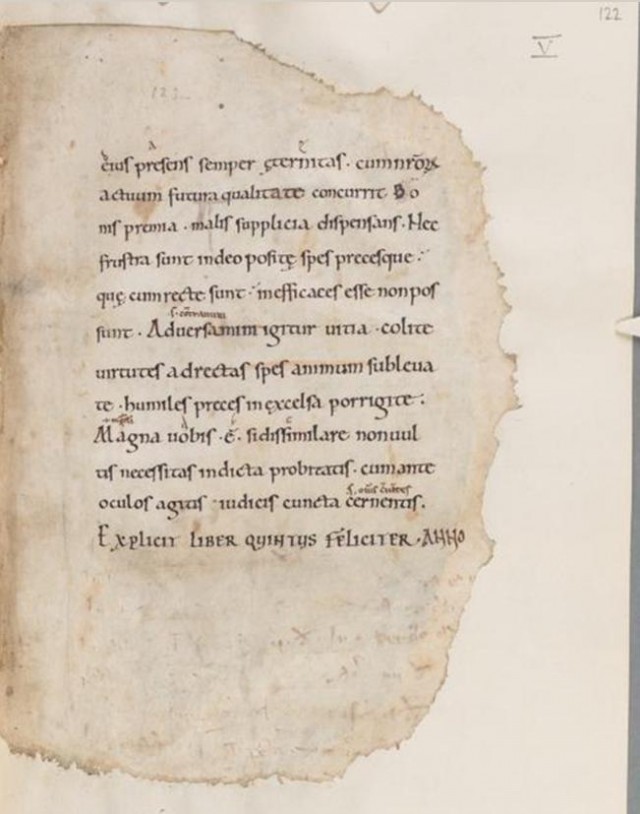 122
V
122
eius presens semper ęternitas . cum nr̄oꝝ
actuum futura qualitate concurrit . Bo
nis premia . malis supplicia dispensans . Nec
frustra sunt indeo positę spes precesque :
quę cum recte sunt . inefficaces esse non pos
s. cōtrarium
sunt . Adversamini igitur uitia . colite
uirtutes ad rectas spes animum subleua
te . humiles preces in excelsa porrigite .
Magna uobis . ē . si dissimilare non uul
tis necessitas indicta probitatis . cum ante
oculos agitis iudicis cuncta cernentis .
Explicit LIBER QUINTUS FELICITER . ANNO